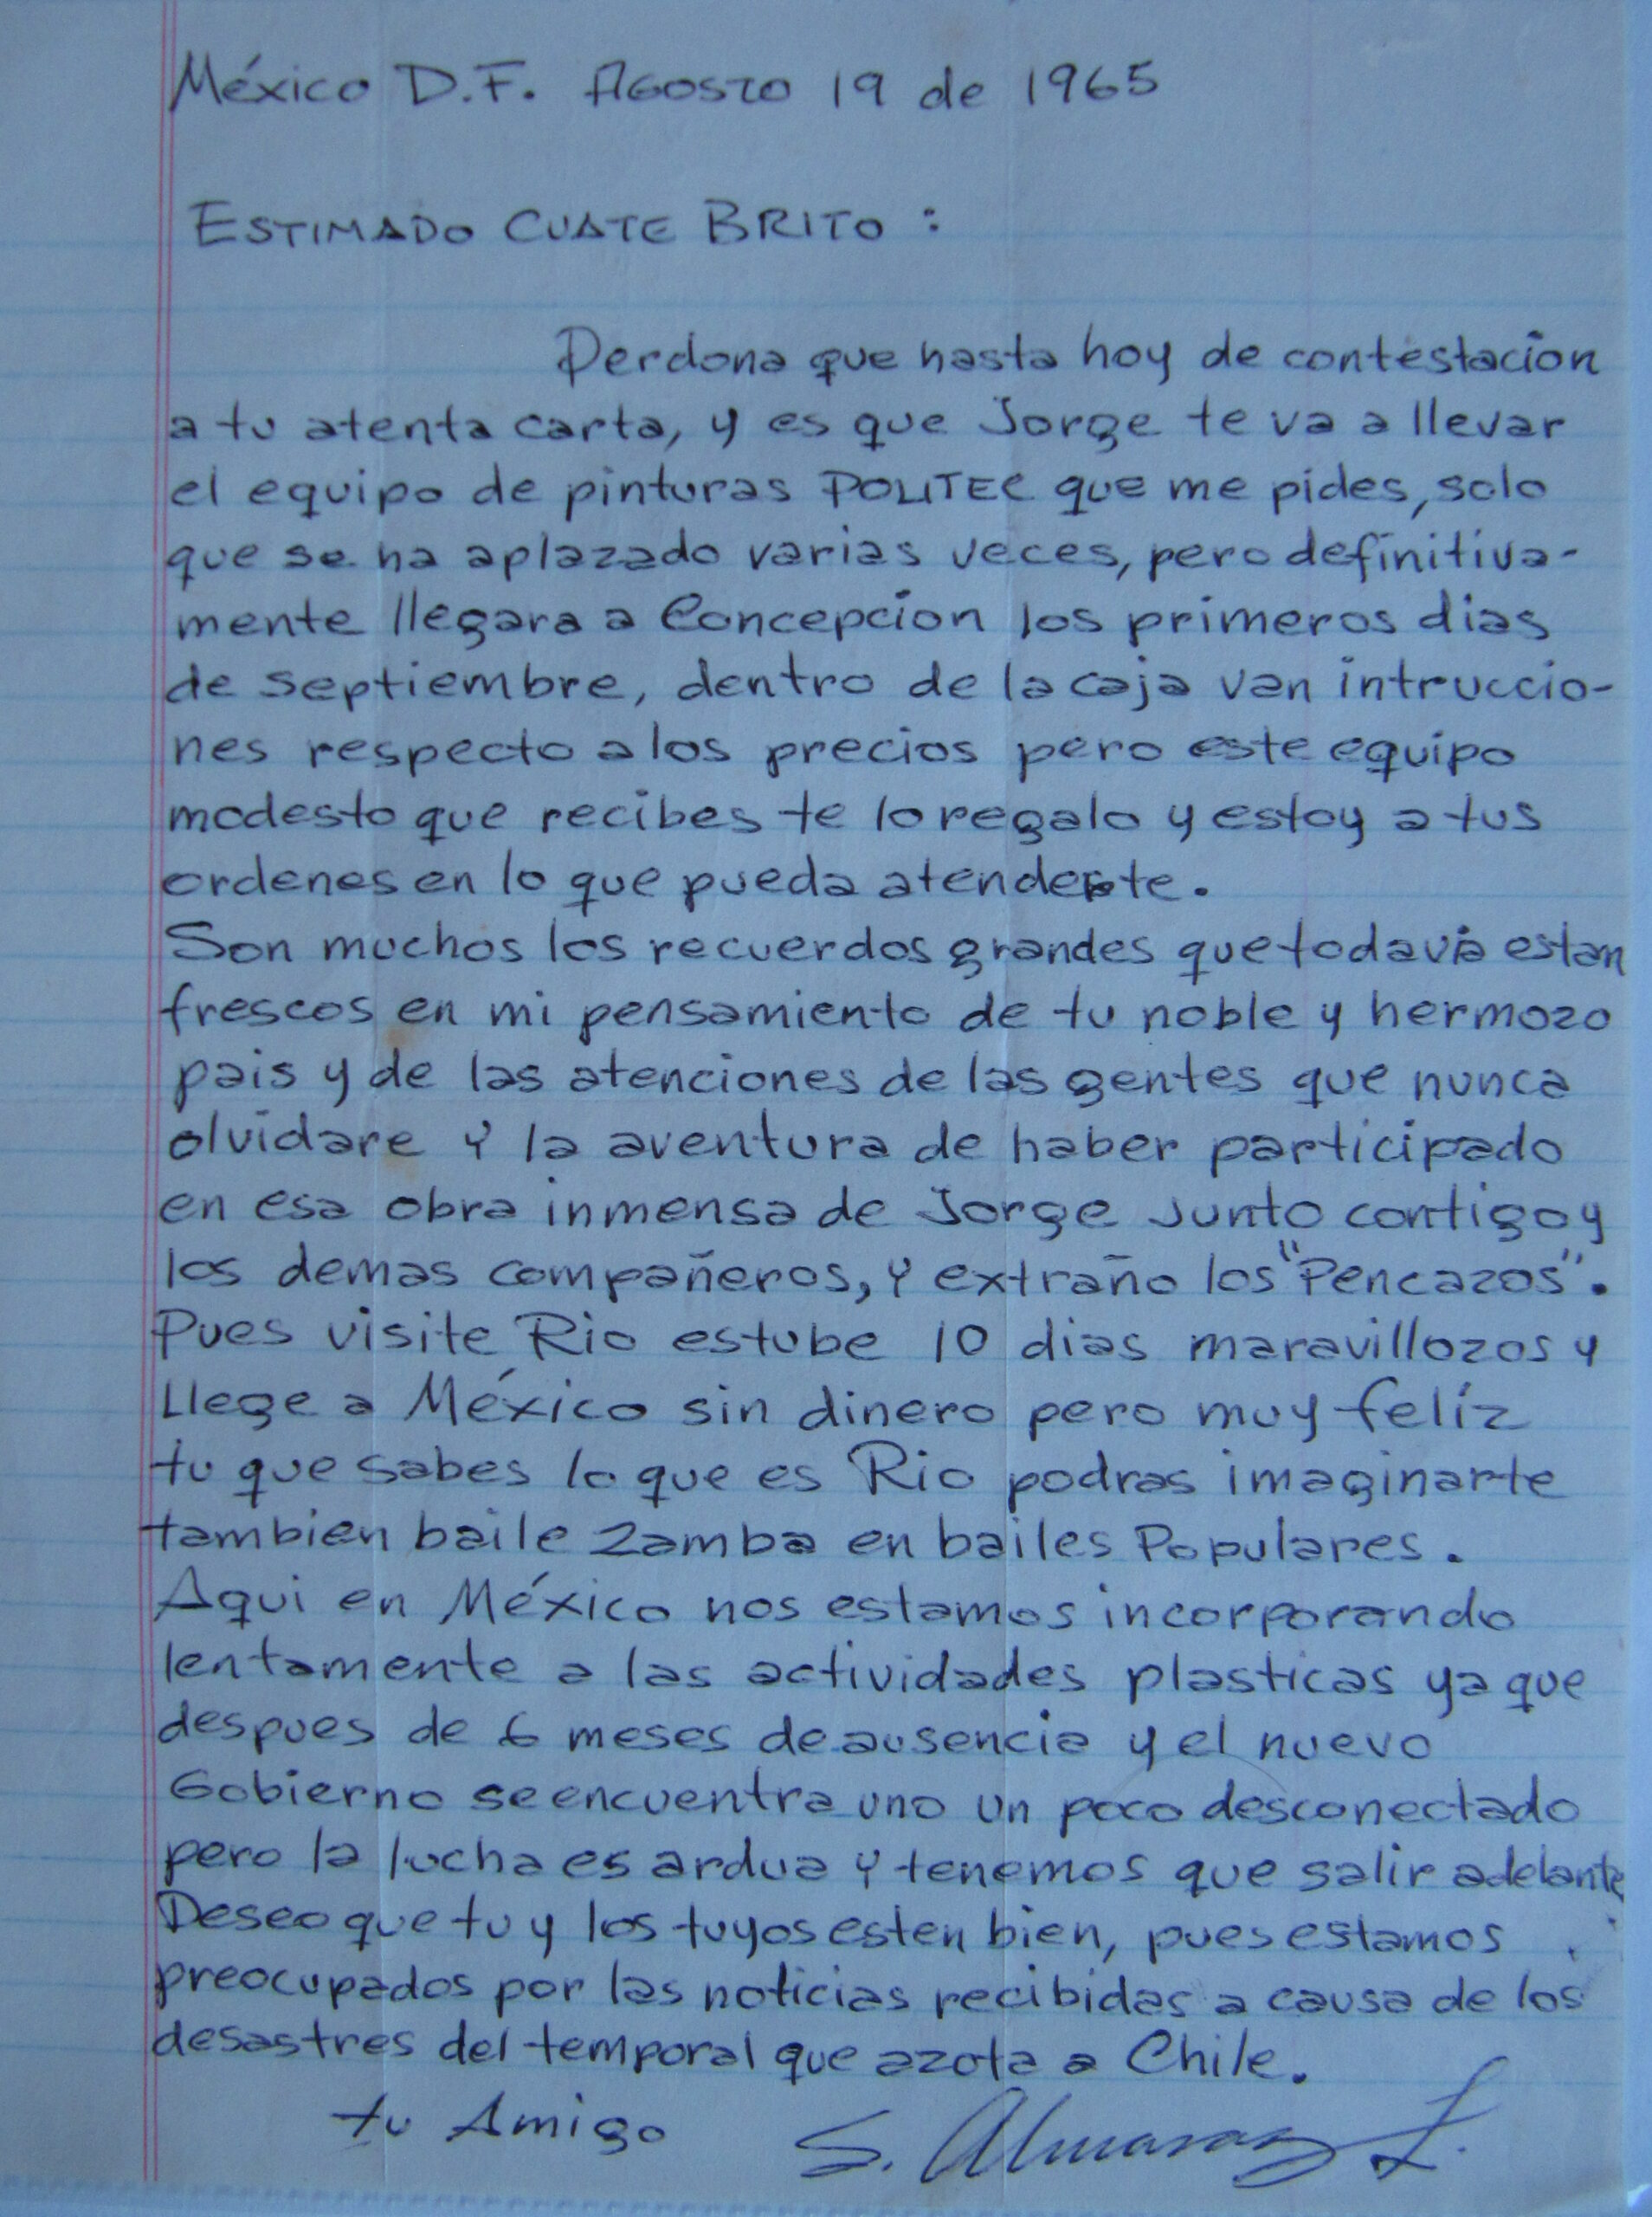 México D.F. Agosto 19 de 1965
ESTIMADO CUATE BRITO :
Perdona que hasta hoy de contestacion
a tu atenta carta, y es que Jorge te va a llevar
el equipo de pinturas POLITEC que me pides, solo
que se ha aplazado varias veces, pero definitiva-
mente llegara a Concepcion los primeros dias
de septiembre, dentro de la caja van intruccio-
nes respecto a los precios pero este equipo
modesto que recibes te lo regalo y estoy a tus
ordenes en lo que pueda atenderte.
Son muchos los recuerdos grandes que todavia estan
frescos en mi pensamiento de tu noble y hermozo
pais y de las atenciones de las gentes que nunca
olvidare y la aventura de haber participado
en esa obra inmensa de Jorge junto contigo y
los demas compañeros, y extraño los "Pencazos".
Pues visite Rio estube 10 dias maravillozos y
Llege a México sin dinero pero muy felíz
tu que sabes lo que es Rio podras imaginarte
tambien baile Zamba en bailes Populares.
Aqui en México nos estamos incorporando
lentamente a las actividades plasticas ya que
despues de 6 meses de ausencia y el nuevo
Gobierno se encuentra uno un poco desconectado
pero la lucha es ardua y tenemos que salir adelante
Deseo que tu y los tuyos esten bien, pues estamos
preocupados por las noticias recibidas a causa de los
desastres del temporal que azota a Chile.
tu Amigo S. Almaraz L.